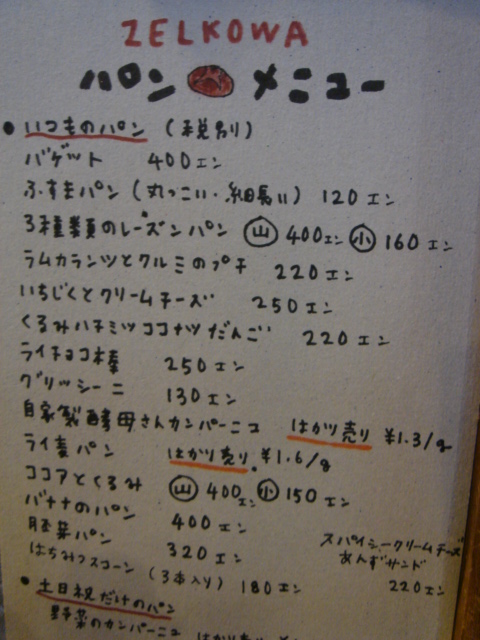 ZELKOWA
パン メニュー
• いつものパン (税別)
バゲット 400エン
ふすまパン (丸っこい・細長い) 120エン
3種類のレーズンパン 山 400エン 小 160エン
ラムカランツとクルミのプチ 220エン
いちじくとクリームチーズ 250エン
くるみハチミツココナツだんご 220エン
ライチョコ棒 250エン
グリッシーニ 130エン
自家製酵母さんカンパーニュ はかり売り ¥1.3/g
ライ麦パン はかり売り ¥1.6/g
ココアとくるみ 山 400エン 小 150エン
バナナのパン 400エン
胚芽パン 320エン
はちみつスコーン (3本入り) 180エン
スパイシークリームチーズ
あんずサンド
220エン
• 土日祝だけのパン
野菜のカンパーニュ はかり売り